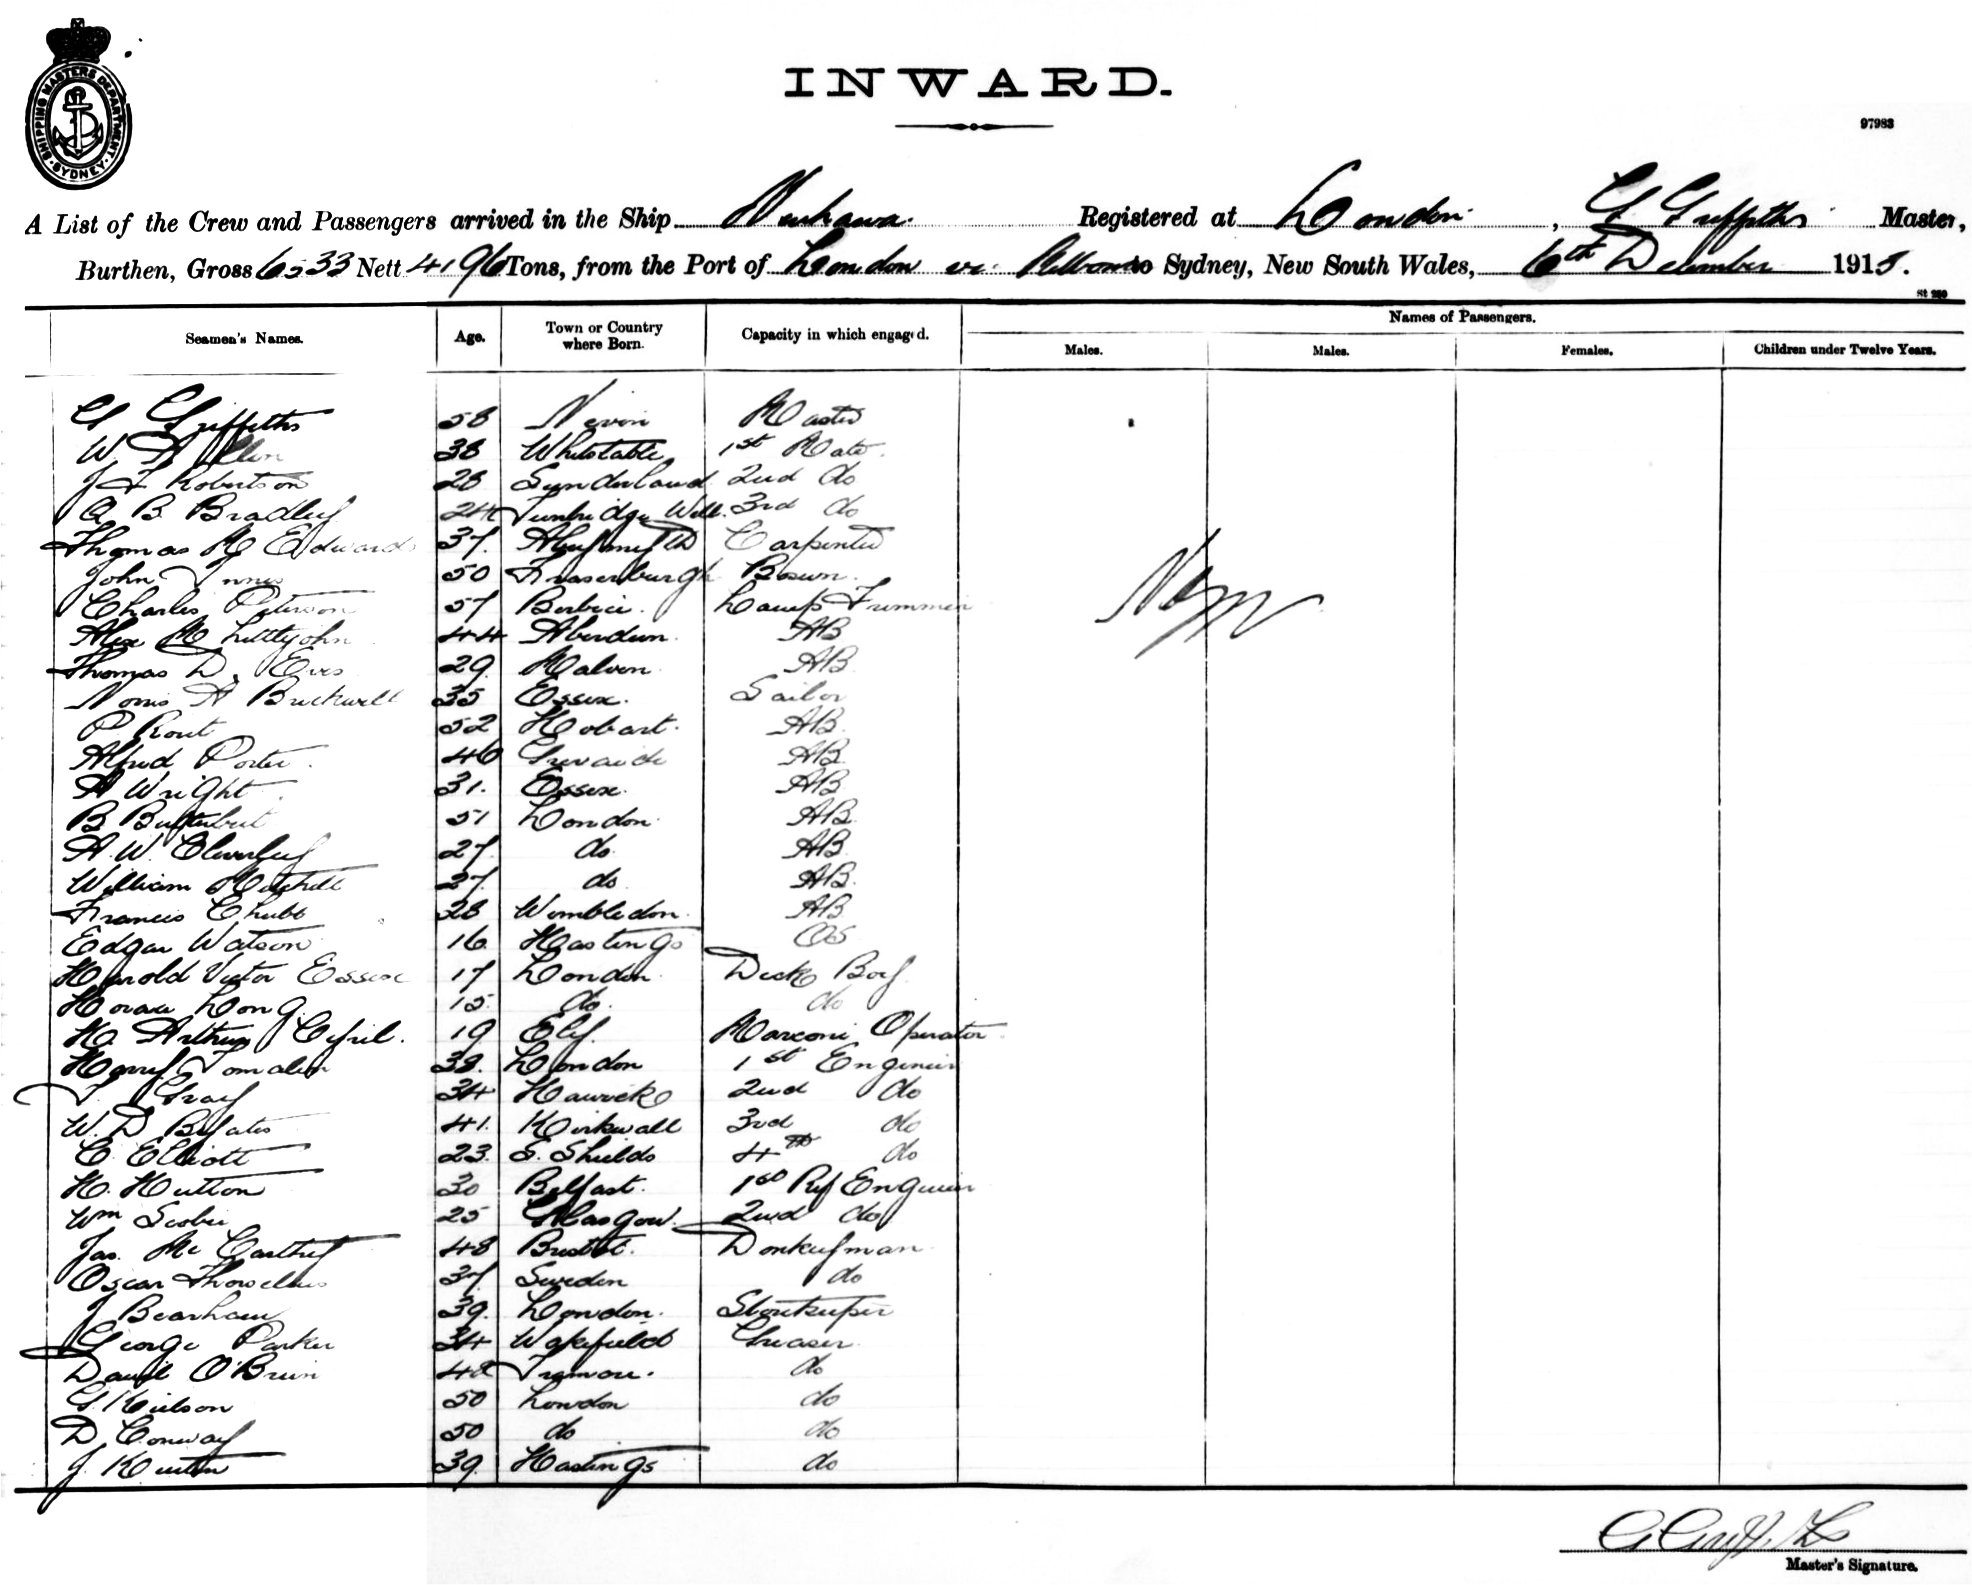 SHIPPING MASTERS DEPARTMENT
SYDNEY
INWARD.
97983
A List of the Crew and Passengers arrived in the Ship Registered at London, G Griffiths Master,
Burthen, Gross 6533 Nett 4196 Tons, from the Port of London to Sydney, New South Wales, 6th December 1915.
St 280
Seamen's Names. Age. Town or Country where Born. Capacity in which engaged. Names of Passengers.
Males. Males. Females. Children under Twelve Years.
G Griffiths 58 Nevin Master
W. A 38 Whitstable 1st Mate.
J F Robertson 28 Sunderland 2nd do
A B Bradley 24 Tunbridge Well. 3rd do
Thomas M Edwards 37. Carpenter
John Innes 50 Fraserburgh Bosun.
Charles Peterson 57 Berbice. Lamp Trimmer
Alex M Littlejohn 44 Aberdeen. AB
Thomas D. 29. Malvern. AB
A 35 Essex. Sailor
P Rout 52 Hobart. AB
Alfred Porter. 46 AB
A Wright 31. Essex. AB
B 51 London. AB
A. W. 27. do. AB
William Mitchell 27. do. AB.
Francis Chubb 28 Wimbledon. AB
Edgar Watson 16 Hastings OS
Harold Victor Essex 17 London. Deck Boy
Horace Long 15. do. do
H. Arthur Cyril. 19 Ely. Marconi Operator
Harry Tomalin 38. London 1st Engineer
T. Gray 34 Hawick 2nd do
W. D Bytes 41. Kirkwall 3rd do
C. Elliott 23. S. Shields 4th do
H. Hutton 30 Belfast. 1st Ref Engineer
Wm Scobie 25 Glasgow. 2nd do
Jas. Mc Carthy 48 Bristol. Donkeyman
Oscar 37. Sweden do
J Bearham 39. London. Storekeeper
George Parker 34 Wakefield Greaser.
Daniel O'Brien 48 Tramore. do
G. Neilson 50 London do
D Conway 50 do do
J. 39. Hastings do
Master's Signature.